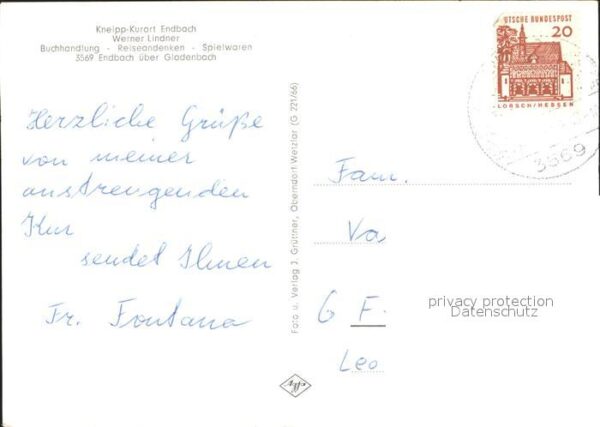 Kneipp-Kurort Endbach
Werner Lindner
Buchhandlung - Reiseandenken - Spielwaren
3569 Endbach über Gladenbach
UTSCHE BUNDESPOST
20
LORSCH/HESSEN
3569
Herzliche Grüße
von meiner
anstrengenden
Kur
sendet Ihnen
Fr. Fontana
Foto u. Verlag J. Grüttner, Oberndorf Wetzlar (G 221/66)
Fam.
Va
6 F.
Leo
privacy protection
Datenschutz